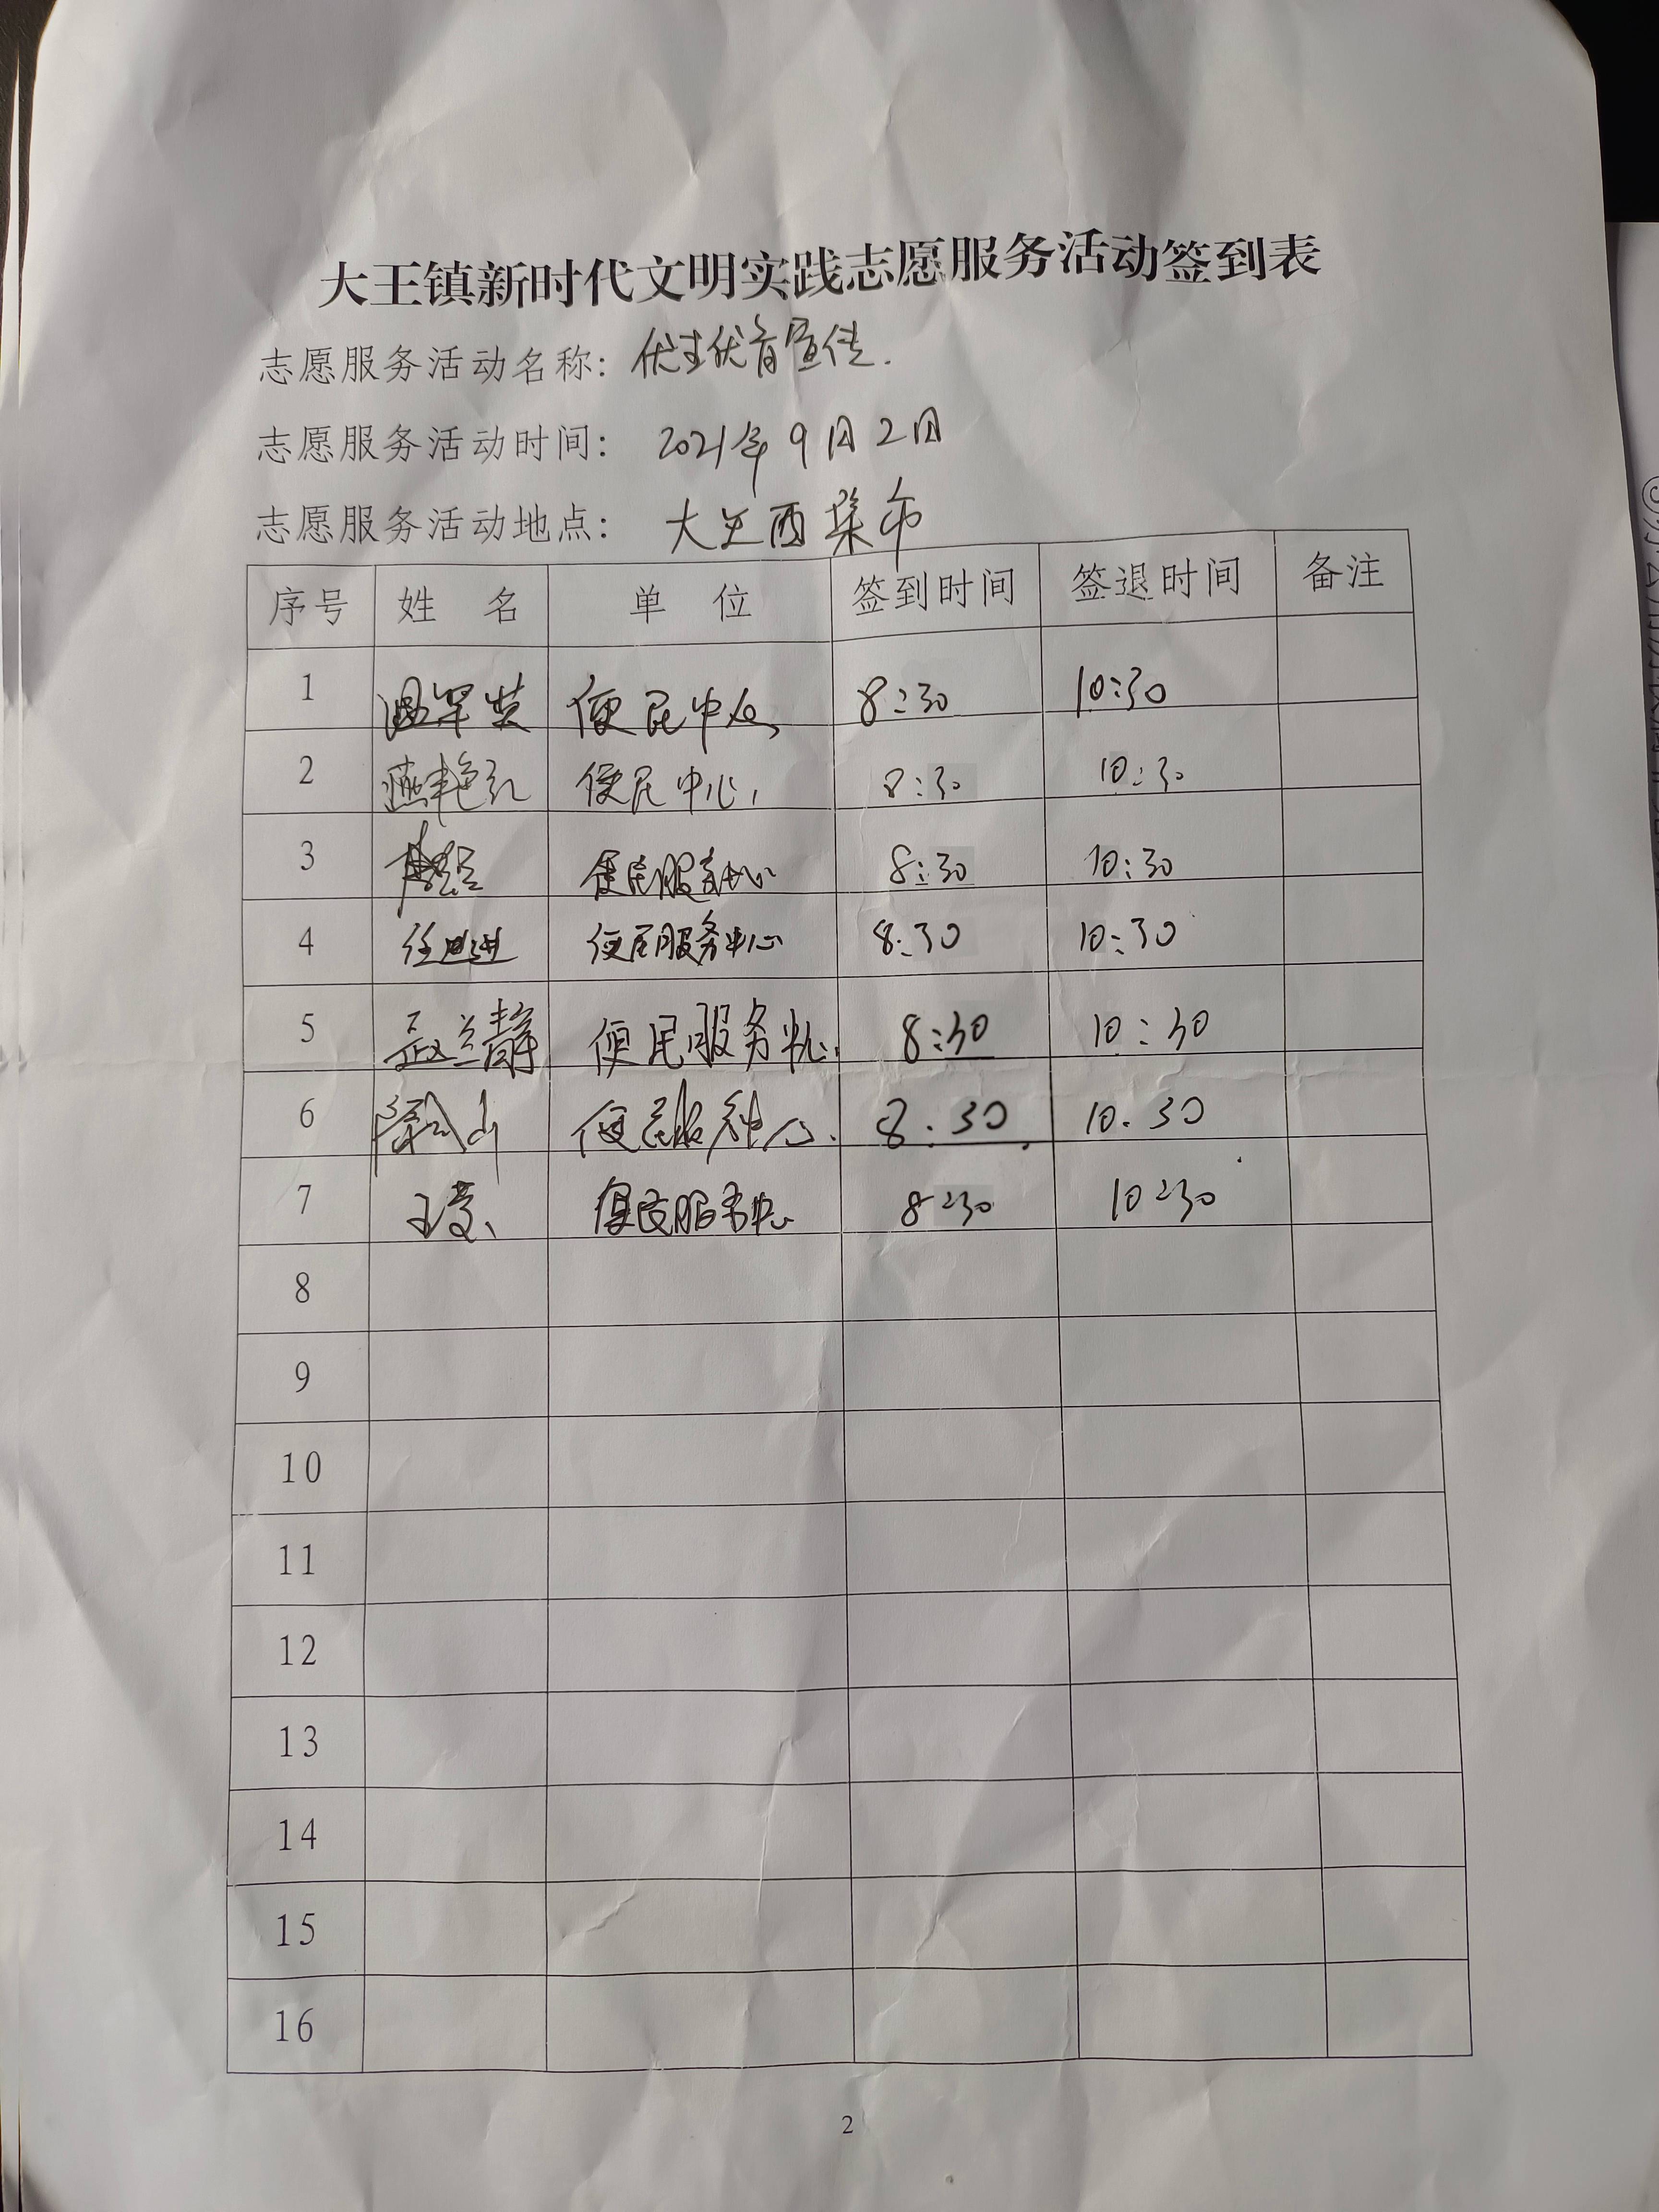 大王镇新时代文明实践志愿服务活动签到表
志愿服务活动名称：优生优育宣传.
志愿服务活动时间：2021年9月2日
志愿服务活动地点：大王西菜市
序号 姓 名 单 位 签到时间 签退时间 备注
1 便民中心 8:30 10:30
2 燕艳红 便民中心 8:30 10:30
3 便民服务中心 8:30 10:30
4 任 便民服务中心 8:30 10:30
5 聂兰静 便民服务中心. 8:30 10:30
6 便民服务中心. 8:30 10.30
7 王 便民服务中心 8:30 10:30
8
9
10
11
12
13
14
15
16
2